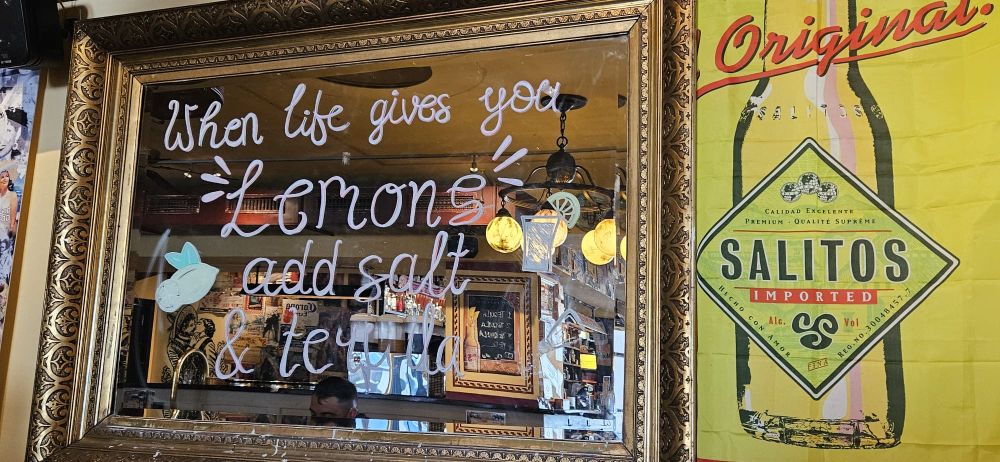 When life gives you
Lemons
add salt
& tequila
Original.
SALITOS
CALIDAD EXCELENTE
PREMIUM - QUALITÉ SUPRÊME
SALITOS
IMPORTED
Alc. Vol
HECHO CON AMOR
REG.NO.30048437-7